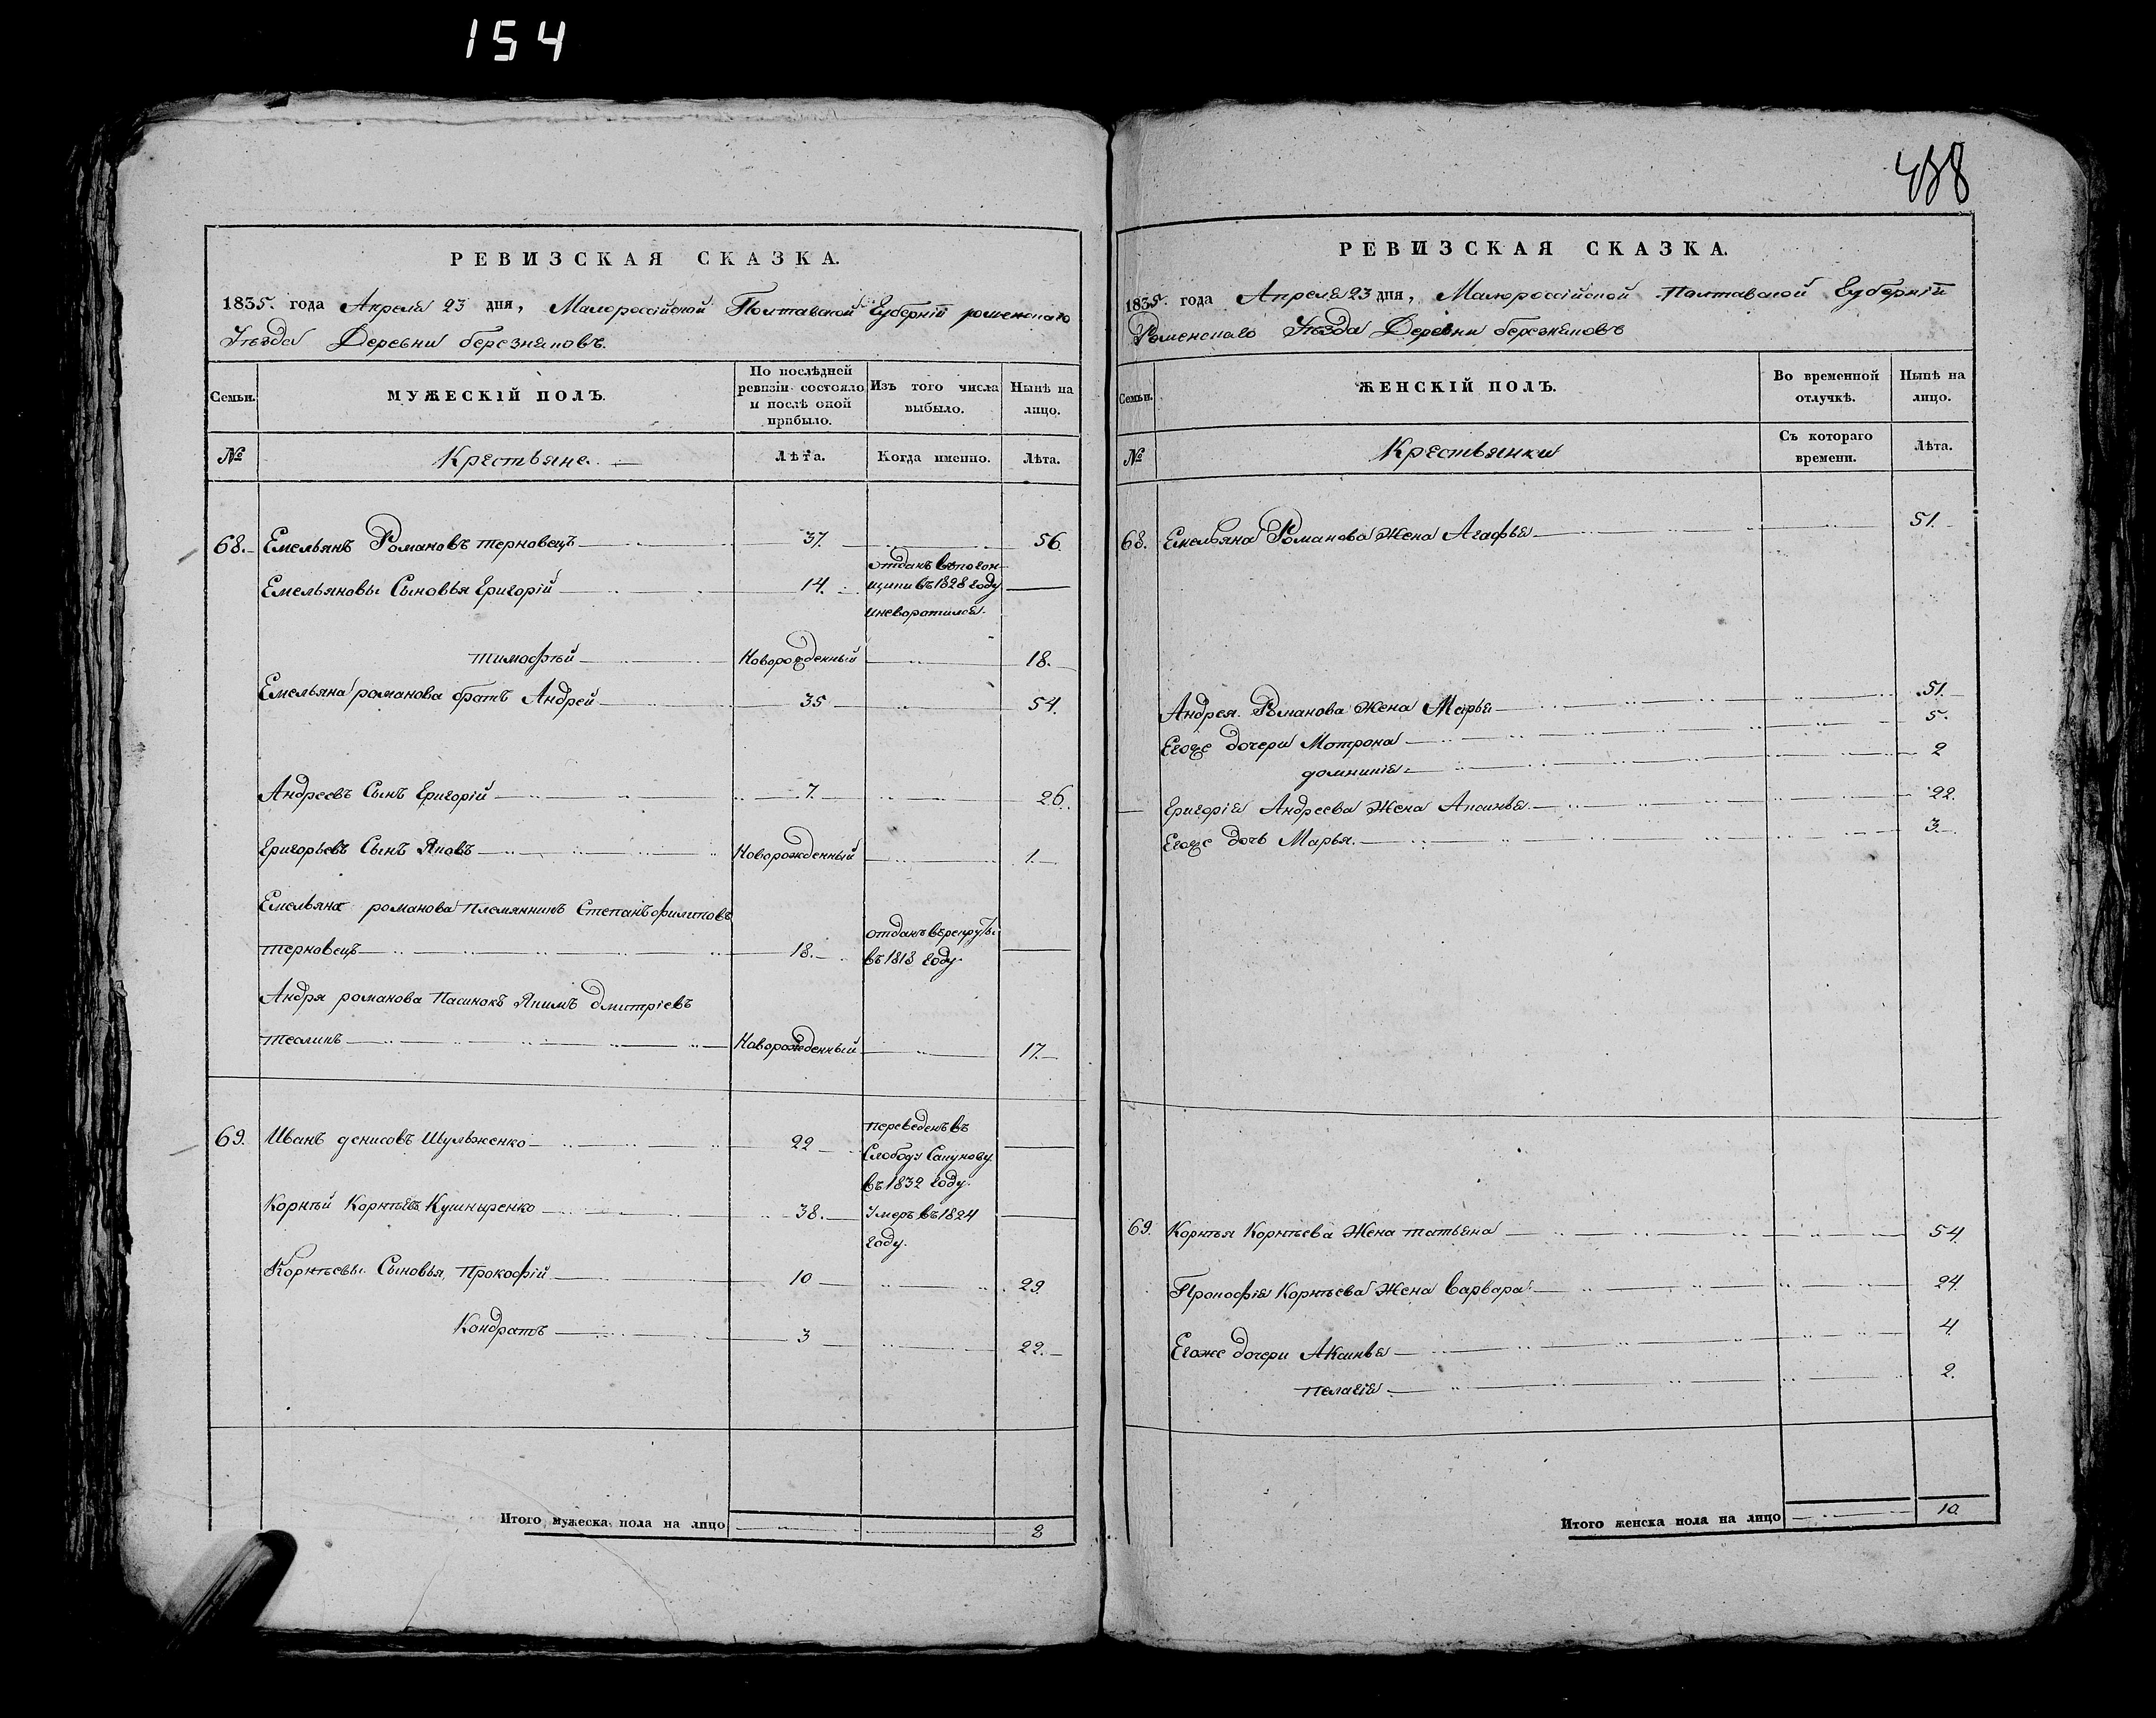 154
РЕВИЗСКАЯ СКАЗКА.
1835. года Апреля 23 дня, Малороссійской Полтавской Губерніи роменскаго
Уѣзда Деревни березняковъ.
Семьи. МУЖЕСКІЙ ПОЛЪ. По послѣдней ревизіи состояло и послѣ оной прибыло. Изъ того числа выбыло. Нынѣ на лицо.
№ Крестьяне. Лѣта. Когда именно. Лѣта.
68. Емельянъ Романовъ терновецъ 37. 56
Емельяновы Сыновья Григорій 14. отданъ в погон-
щики въ 1828 году
и неворотился.
тимофѣй Новорожденный 18.
Емельяна романова братъ Андрей 35 54.
Андреевъ Сынъ Григорій 7. 26.
Григорьевъ Сынъ Яковъ Новорожденный 1.
Емельяна романова племянникъ Степанъ филиповъ
терновецъ 18. отданъ в рекруты
въ 1813 году.
Андря романова Пасинокъ Якимъ дмитріевъ
Новорожденный 17.
69. Иванъ денисовъ Шульженко 22 переведенъ въ
Слободу Сапунову
въ 1832 году.
Корнѣй Корнѣевъ Кушниренко 38. Умеръ въ 1824
году.
Корнѣевы Сыновья Прокофій 10 29.
Кондратъ 3 22.
Итого мужеска пола на лицо 8
488
РЕВИЗСКАЯ СКАЗКА.
1835. года Апреля 23 дня, Малороссійской Полтавской Губерніи
Роменскаго Уѣзда Деревни березняковъ
Семьи. ЖЕНСКІЙ ПОЛЪ. Во временной отлучкѣ. Нынѣ на лицо.
№ Крестьянки Съ котораго времени. Лѣта.
68. Емельяна Романова Жена Агафья 51.
Андрея Романова Жена Марья 51.
Егоже дочери Мотрона 5.
домникія 2
Григорія Андреева Жена Аксинья 22.
Егоже дочь Марья. 3.
69. Корнѣя Корнѣева Жена татьяна 54.
Прокофія Корнѣева Жена Варвара 24.
Егоже дочери Аксинья 4.
пелагія 2.
Итого женска пола на лицо 10.